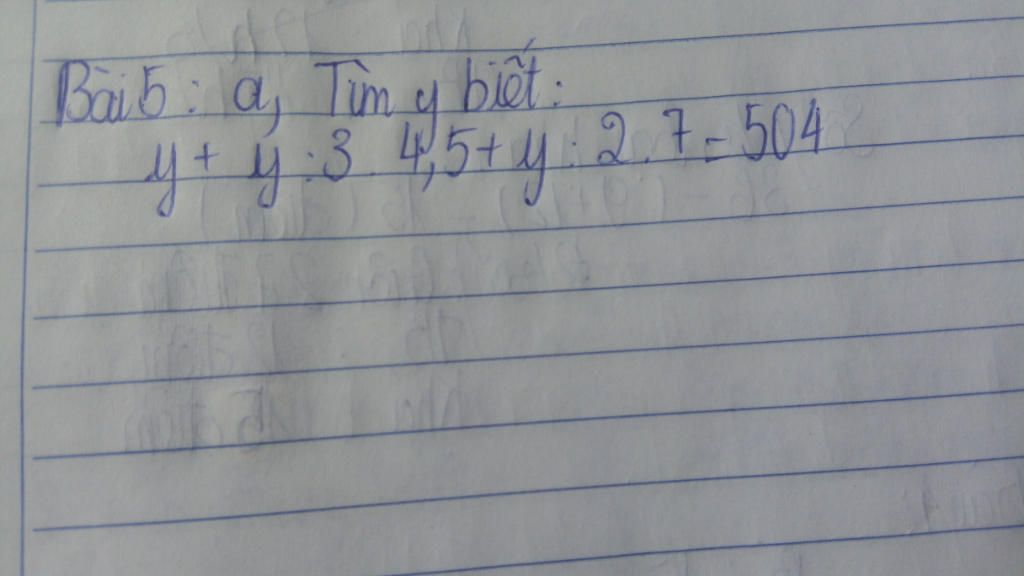 Bài 5 : a, Tìm y biết :
y + y : 3 . 4,5 + y : 2 . 7 = 504